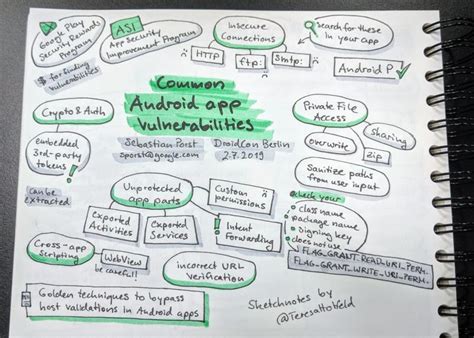 Google Play
Security Rewards
Program
$ for finding
vulnerabilities
ASI
App Security
Improvement Program
Insecure
Connections
HTTP
ftp:
Smtp:
search for these
in your app
Android P
Common
Android app
Vulnerabilities
Sebastian Porst
sporst@google.com
DroidCon Berlin
2.7.2019
Crypto & Auth
embedded
3rd-party
tokens
!
can be
extracted
Private File
Access
overwrite
sharing
zip
Sanitize paths
from user input
check your
! class name
package name
! Signing key
! does not use
FLAG_GRANT_READ_URI_PERM.
FLAG_GRANT_WRITE_URI_PERM.
Unprotected
app parts
Custom
permissions
! Intent
Forwarding
Exported
Activities
Exported
Services
Cross-app
Scripting
WebView
be careful!
incorrect URL
verification
Golden techniques to bypass
host validations in Android apps
Sketchnotes by